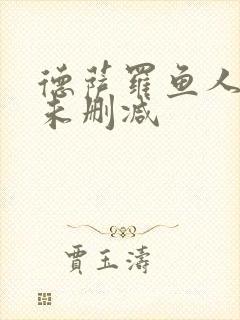 德萨罗鱼人
未删减
贾玉涛